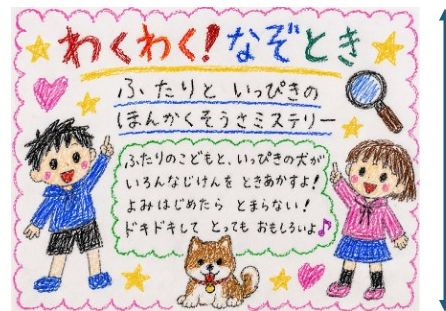 わくわく!なぞとき
ふたりと いっぴきの
ほんかくそうさミステリー
ふたりのこどもと、いっぴきの犬が
いろんなじけんを ときあかすよ!
よみはじめたら とまらない!
ドキドキして とっても おもしろいよ♪